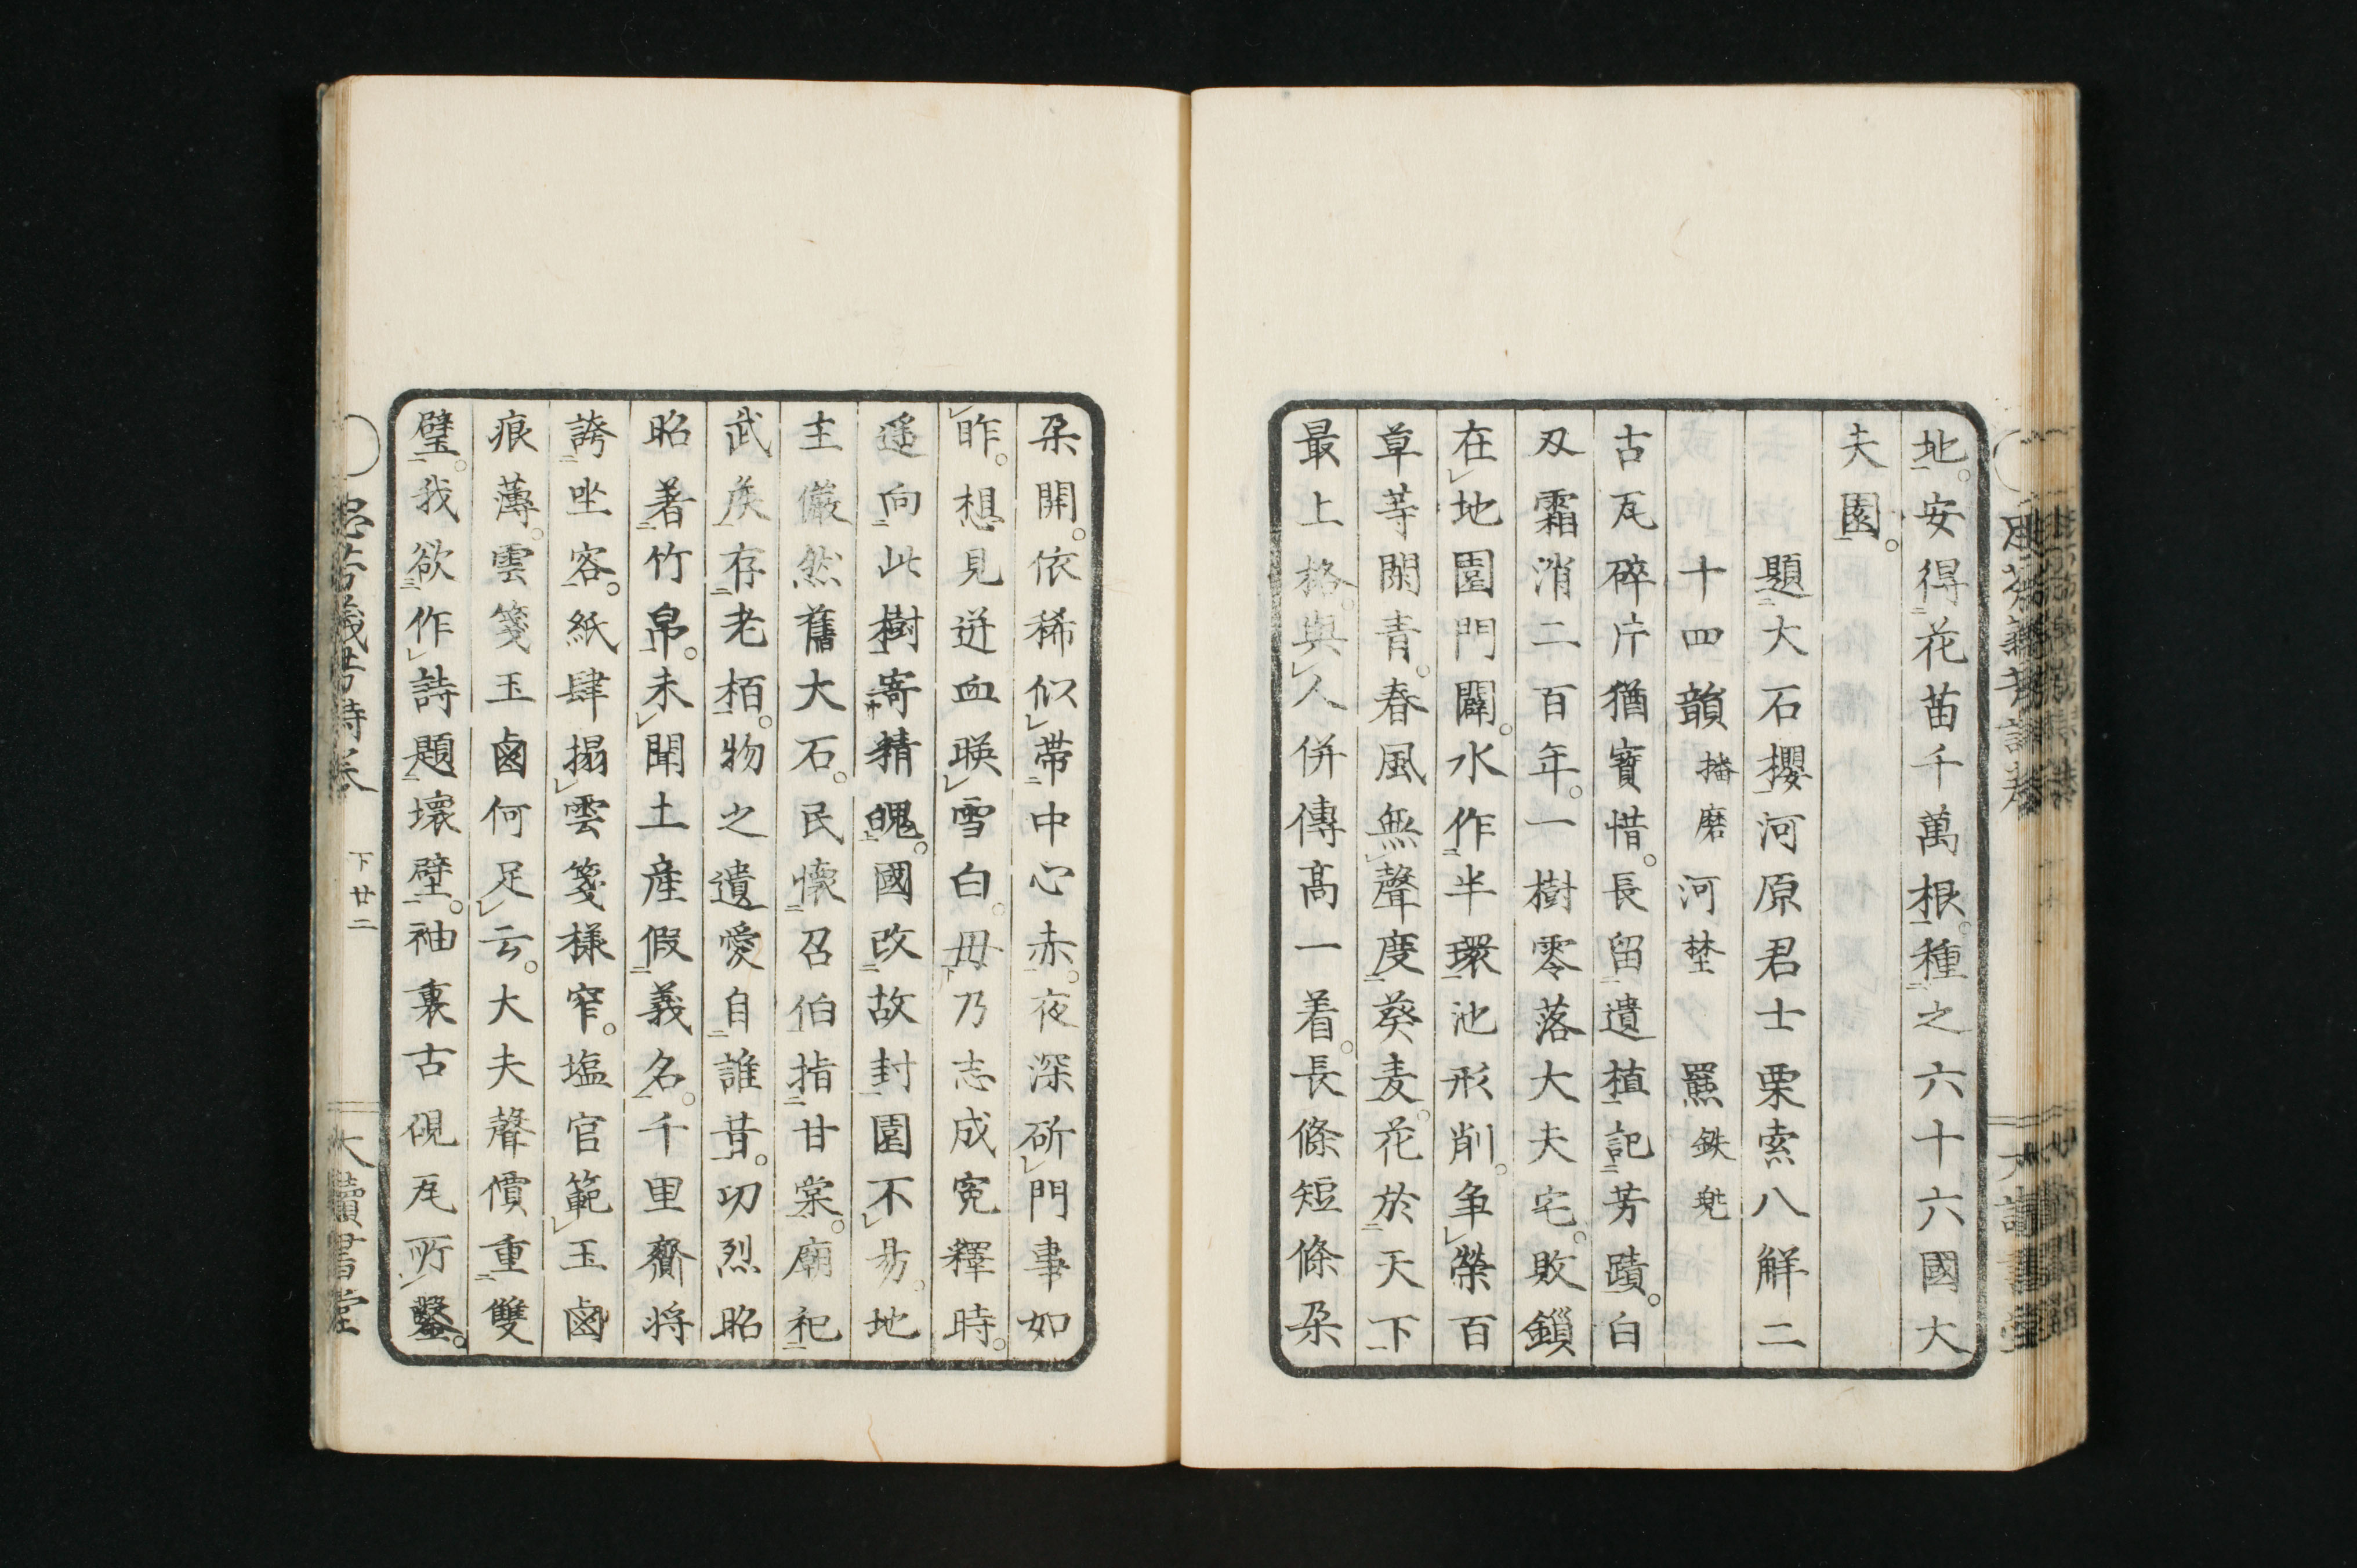 地。安得花苗千萬根。種之六十六國大
夫園。
題大石櫻河原君士栗索八解二
十四韻 播磨 河埜 羆 鉄兠
古瓦碎片猶寳惜。長留遺植記芳蹟。白
刄霜消二百年。一樹零落大夫宅。敗鎻
在地園門闢。水作半環池形削。争榮百
草等閑青。春風無聲度葵麦。花於天下
最上格。與人併傳髙一着。長條短條朶
朶開。依稀似帯中心赤。夜深斫門事如
昨。想見迸血暎雪白。毋乃志成寃釋時。
遥向此樹寄精魄。國改故封園不易。地
主儼然舊大石。民懐召伯指甘棠。廟祀
武矦存老栢。物之遺愛自誰昔。功烈昭
昭著竹帛。未聞土産假義名。千里齎将
誇坐客。紙肆搨雲箋様窄。塩官範玉鹵
痕薄。雲箋玉鹵何足云。大夫聲價重雙
璧。我欲作詩題壞壁。袖裏古硯瓦所鑿。
下廿二
大讀書堂